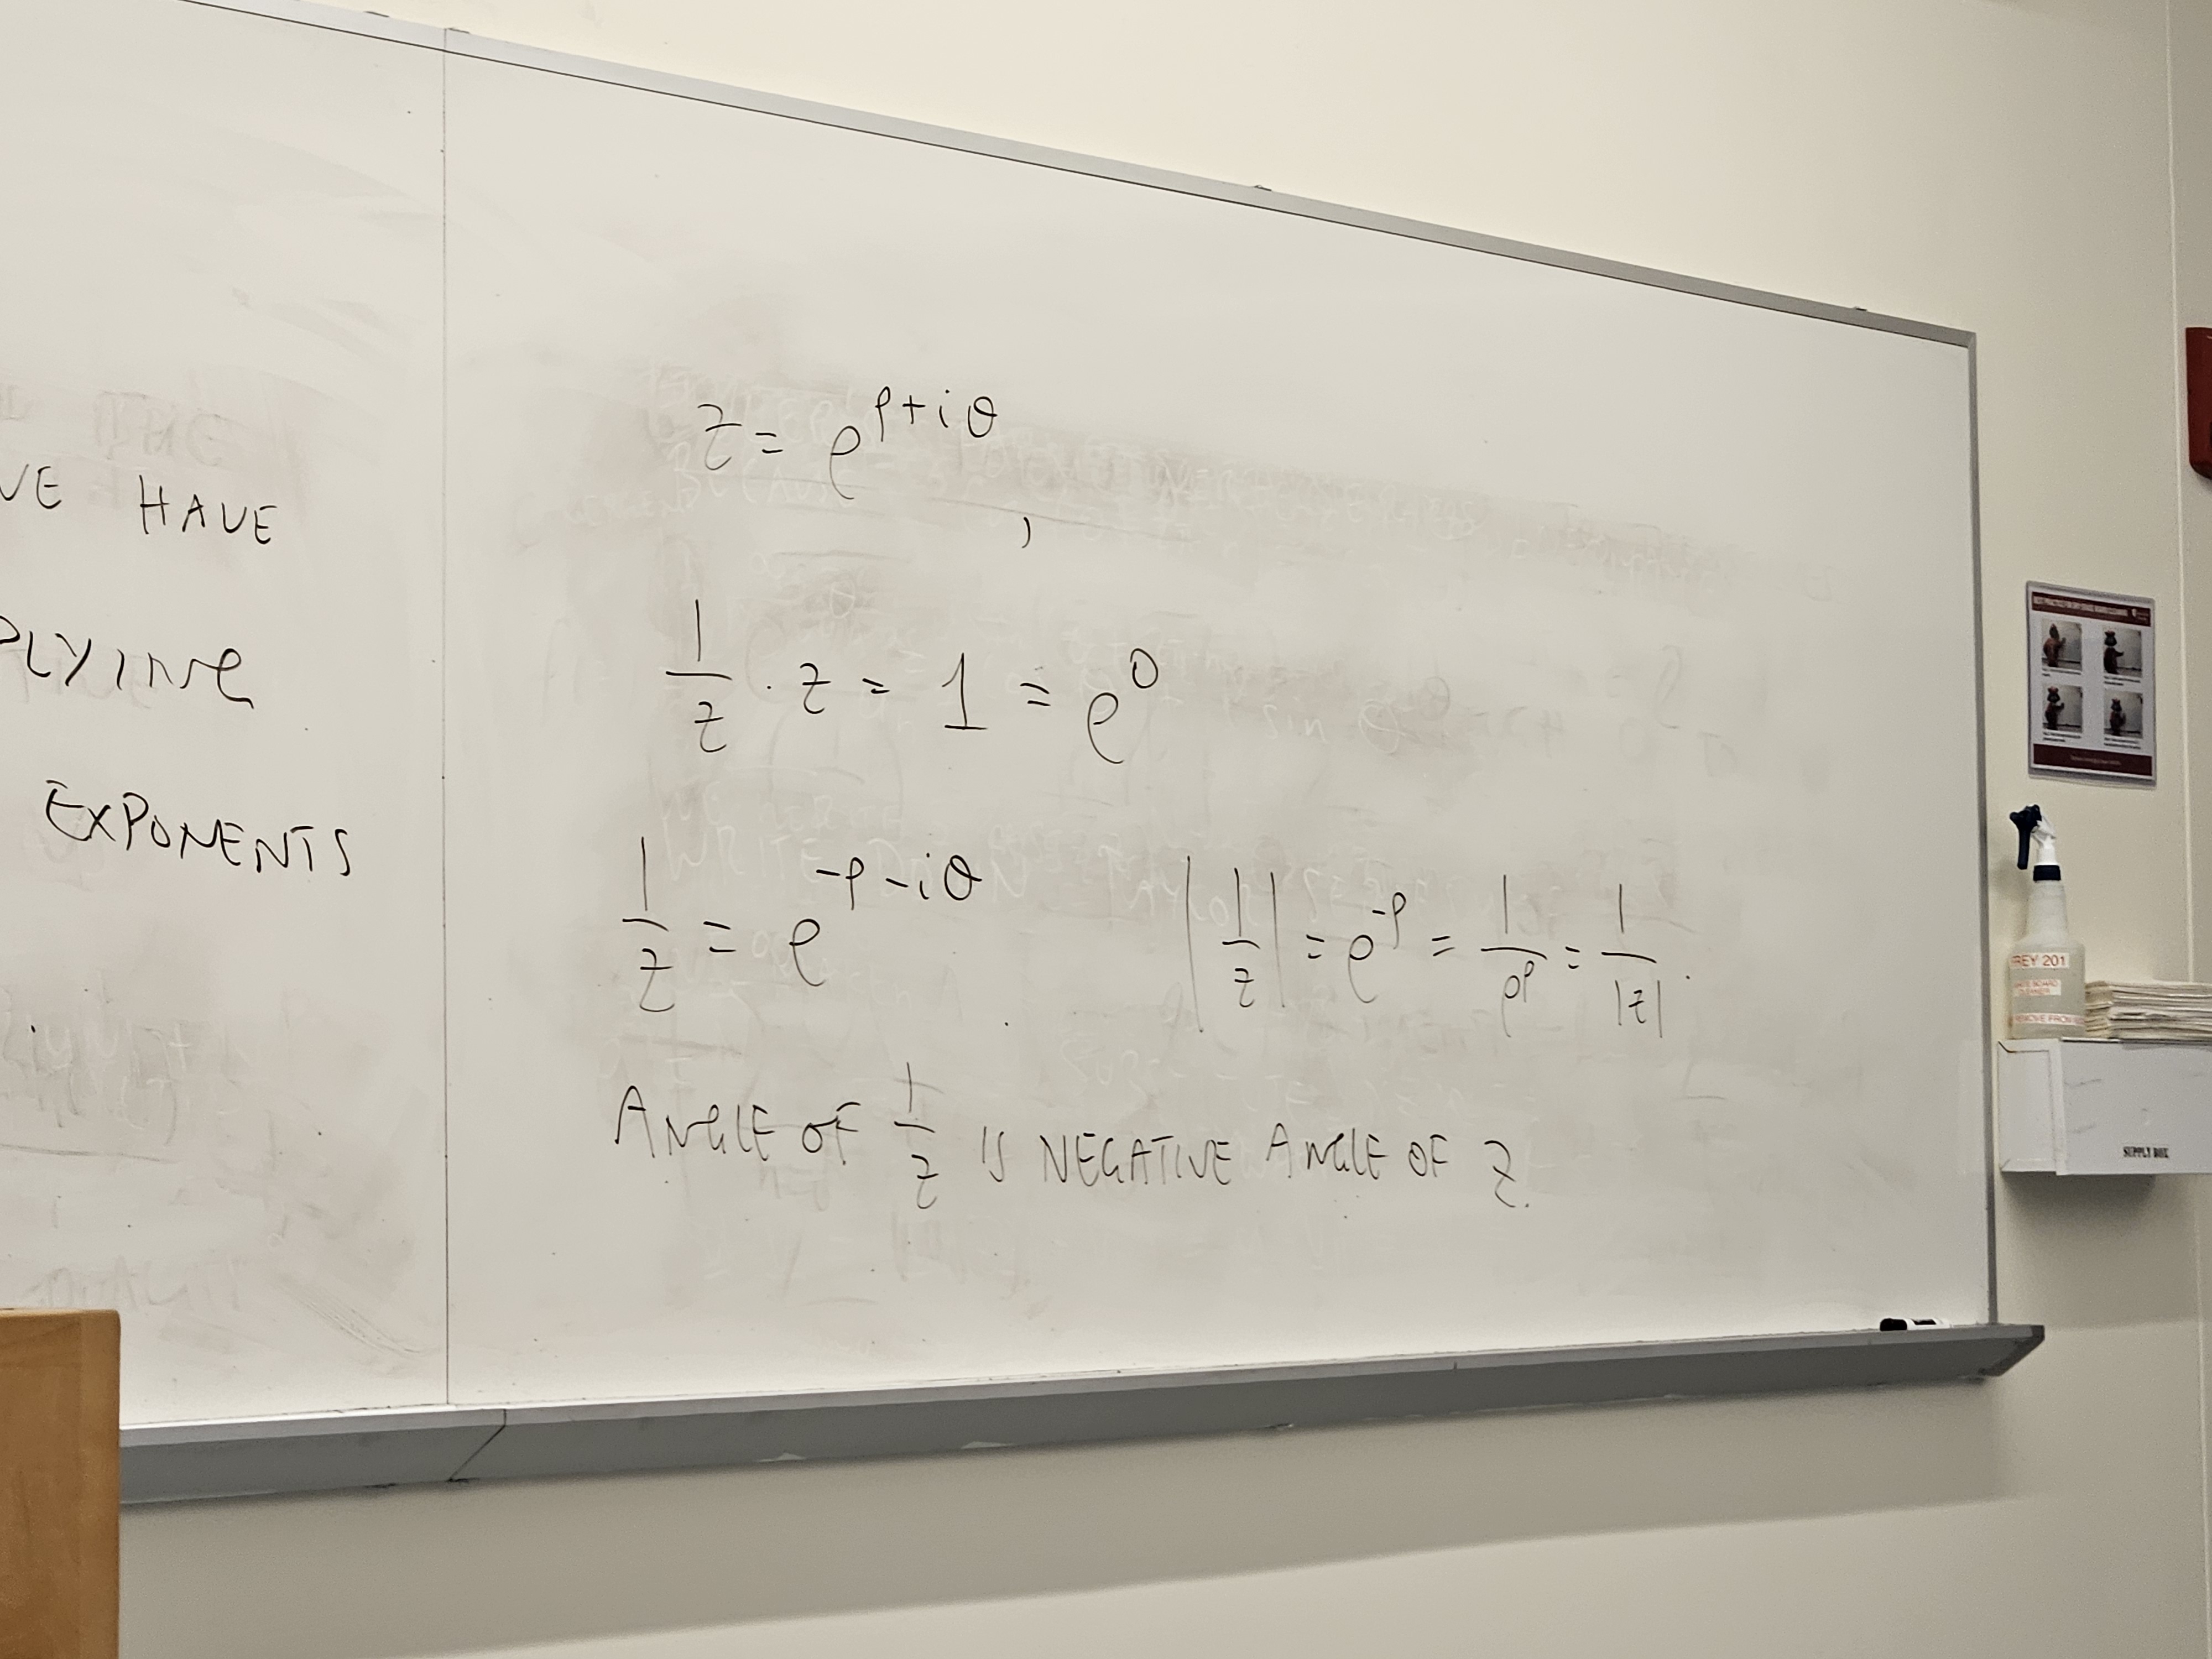 VE HAVE
PLYING
EXPONENTS
z = e^{ρ+iθ},
1/z · z = 1 = e^0
1/z = e^{-ρ-iθ}. |1/z| = e^{-ρ} = 1/e^ρ = 1/|z|.
ANGLE OF 1/z IS NEGATIVE ANGLE OF z.
FREY 201
REMOVE FROM
SUPPLY BOX